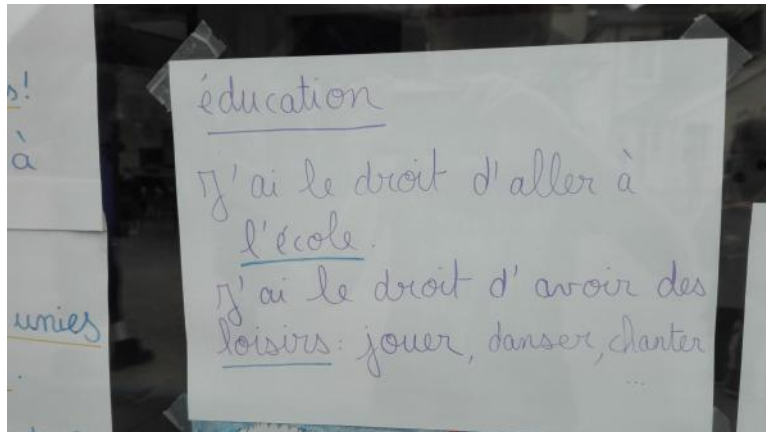 s!
à
unies
éducation
J'ai le droit d'aller à
l'école.
J'ai le droit d'avoir des
loisirs : jouer, danser, chanter
...